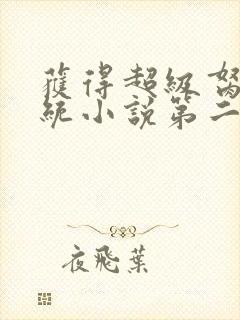 獲得超級
統小說第二
夜飛葉